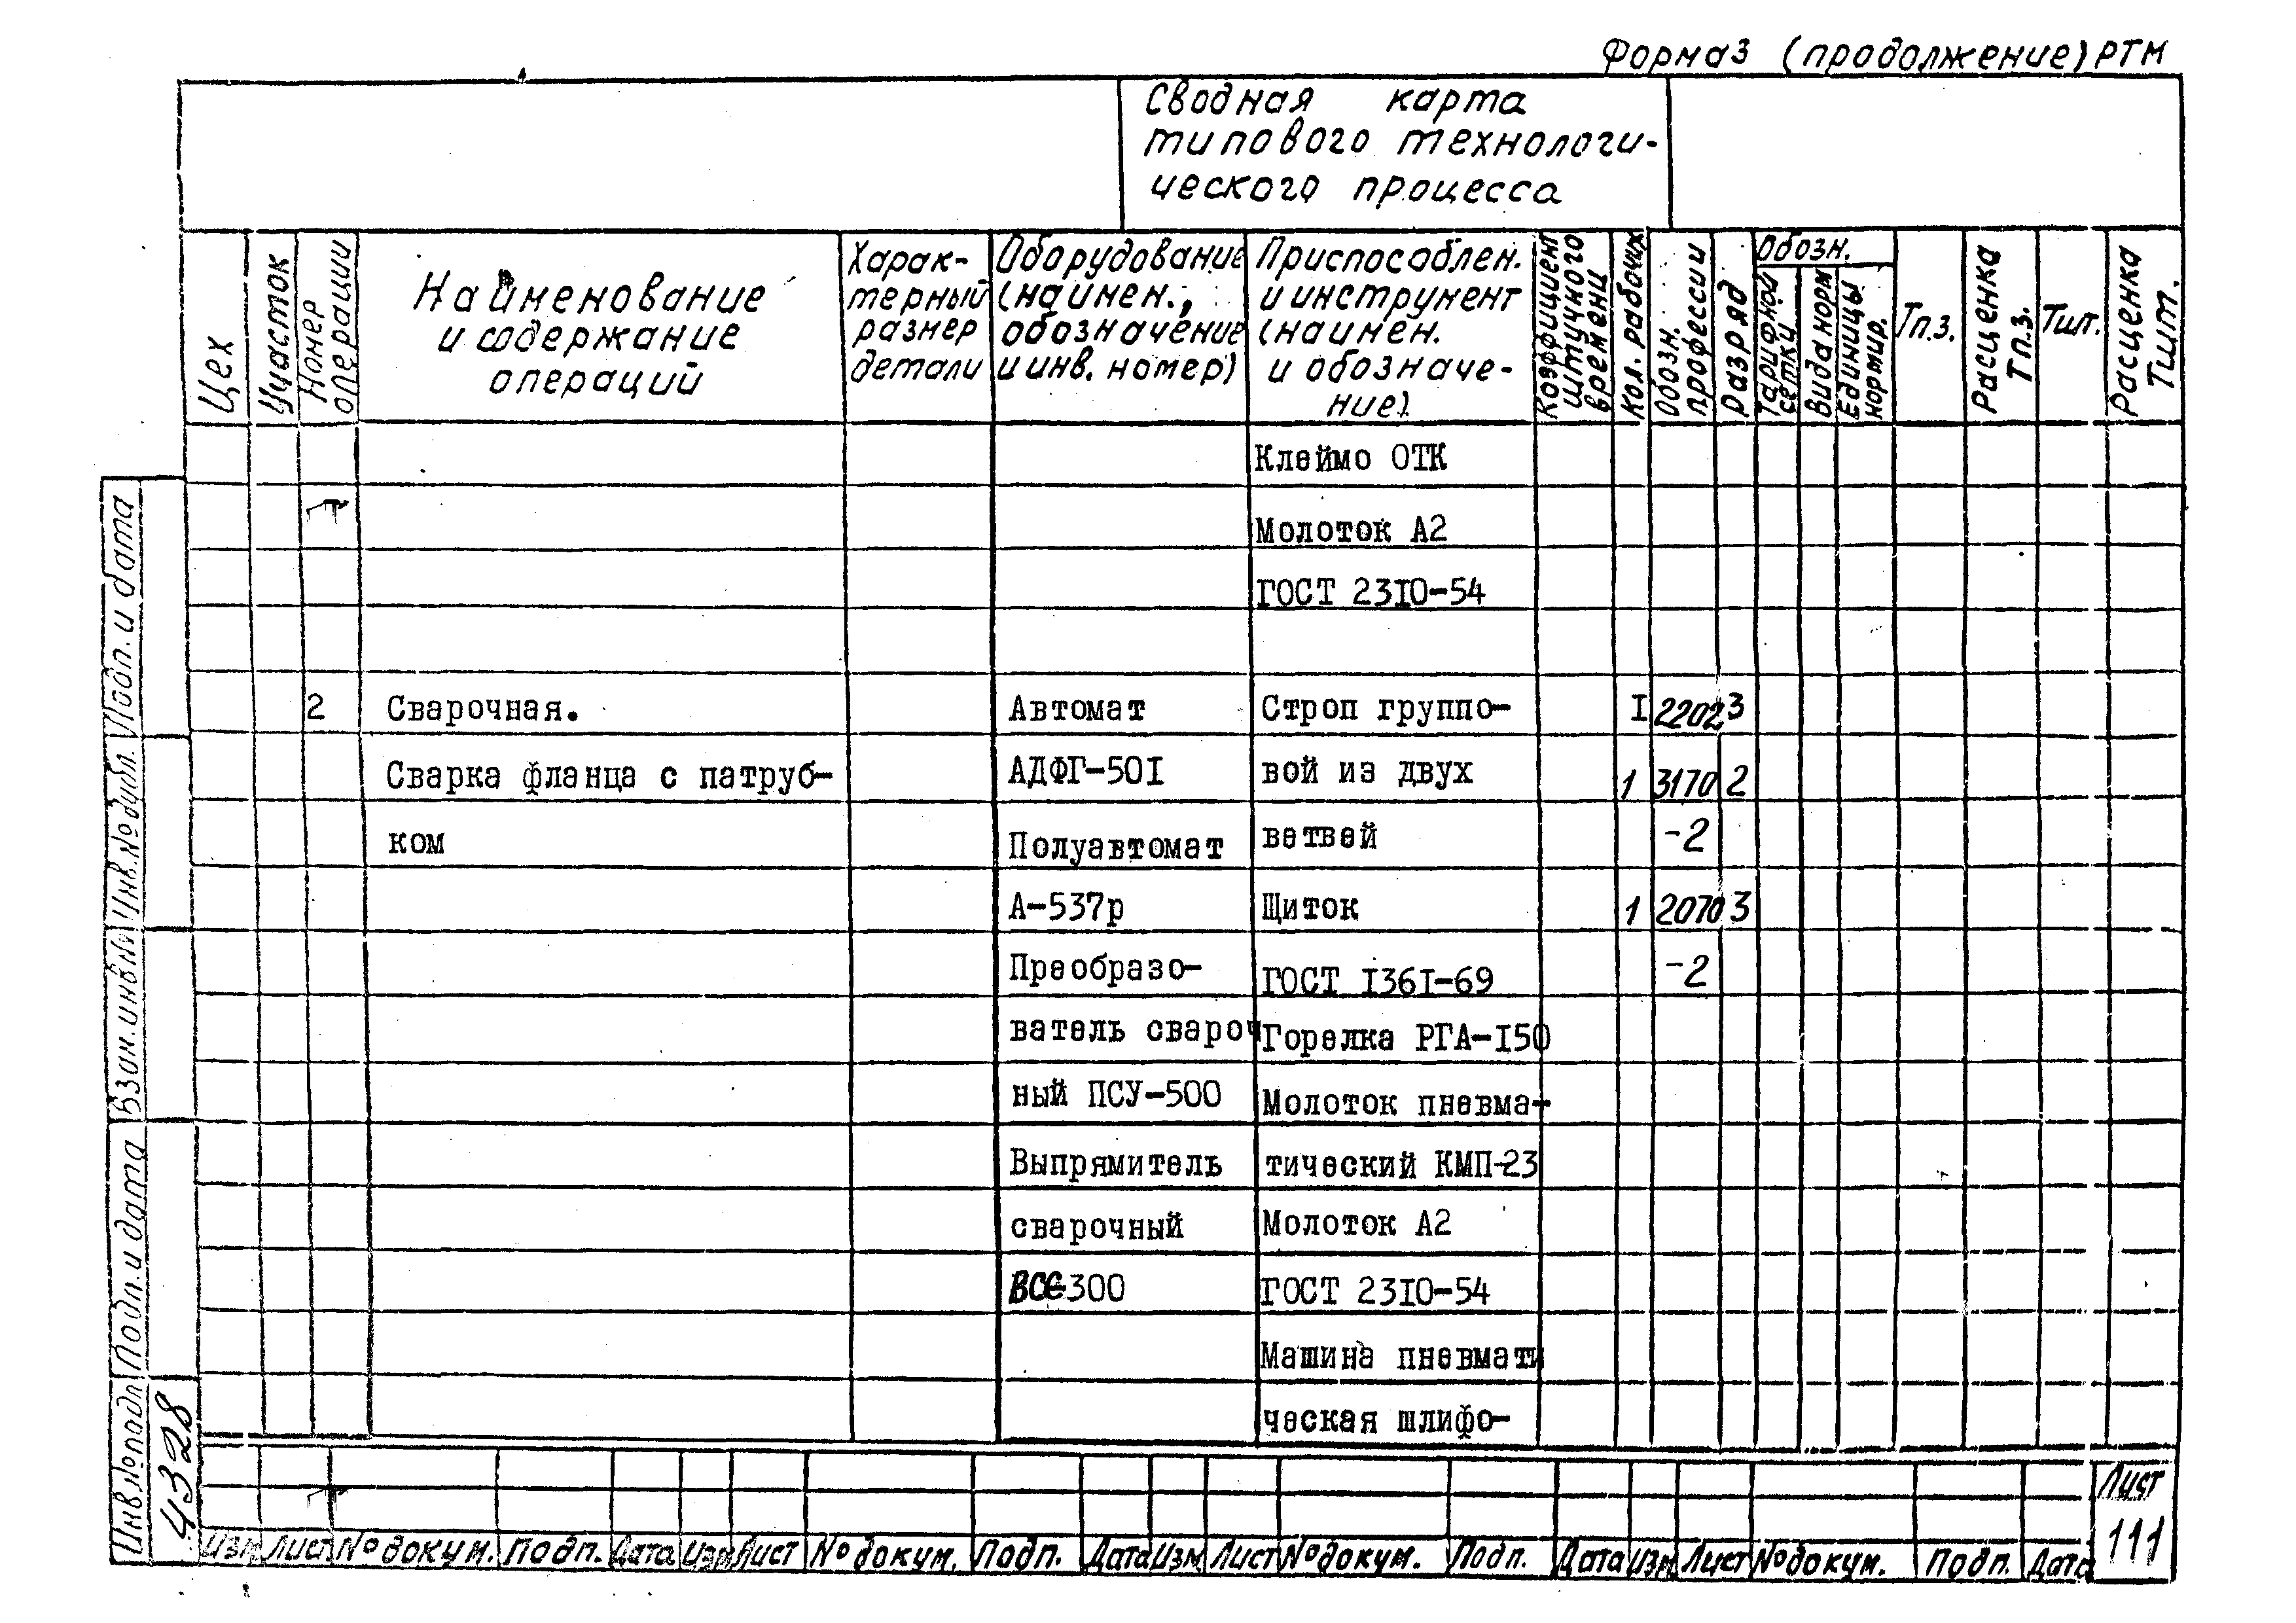 Форма 3 (продолжение) РТМ
Сводная карта
типового технологи-
ческого процесса
Цех
Участок
Номер
операции
Наименование
и содержание
операций
Харак-
терный
размер
детали
Оборудование
(наимен.,
обозначение
и инв. номер)
Приспособлен.
и инструмент
(наимен.
и обозначе-
ние)
Коэффициент
штучного
времени
Кол. рабочих
Обозн.
профессии
Разряд
Обозн.
Тарифной
сетки
Вида норм
Единицы
нормир.
Тп.з.
Расценка
Тп.з.
Тшт.
Расценка
Тшт.
Клеймо ОТК
Молоток А2
ГОСТ 2310-54
2 Сварочная. Автомат Строп группо- I 2202 3
Сварка фланца с патруб- АДФГ-50I вой из двух 1 3170 2
ком Полуавтомат ветвей -2
А-537р Щиток 1 2070 3
Преобразо- ГОСТ I36I-69 -2
ватель свароч Горелка РГА-I50
ный ПСУ-500 Молоток пневма-
Выпрямитель тический КМП-23
сварочный Молоток А2
ВСС-300 ГОСТ 23I0-54
Машина пневмати
ческая шлифо-
Подп. и дата
Инв.№дубл.
Взам.инв№
Подп. и дата
Инв№подл
4328
Изм Лист № докум. Подп. Дата Изм Лист № докум. Подп. Дата Изм Лист № докум. Подп. Дата Изм Лист № докум. Подп. Дата
Лист
111